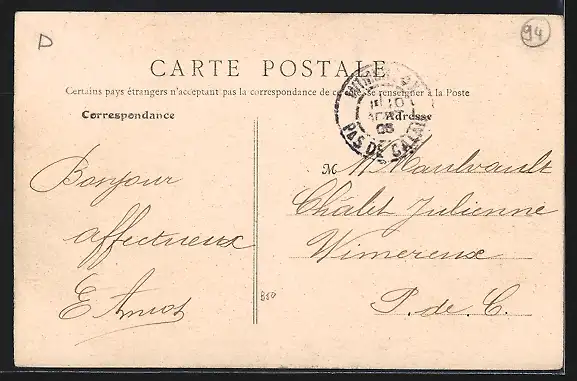 D
94
CARTE POSTALE
Certains pays étrangers n'acceptant pas la correspondance de ce se renseigner à la Poste
Correspondance
Adresse
PAS DE CALAIS
Bonjour
affectueux
E Amiot
M
Châlet Julienne
Wimereux
P. de C.
B80